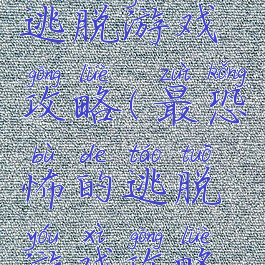 逃脱游戏
gōng lüè zuì kǒng
攻略(最恐
bù de táo tuō
怖的逃脱
yóu xì gōng lüè
游戏攻略